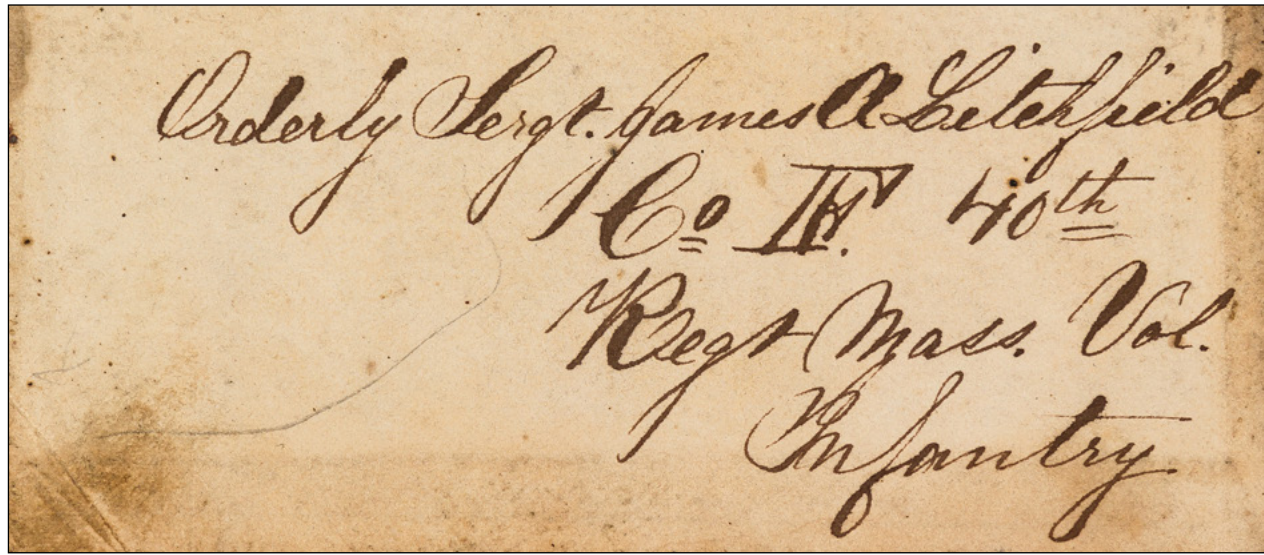 Orderly Sergt. James A Litchfield
Co 40th
Regt Mass. Vol.
Infantry